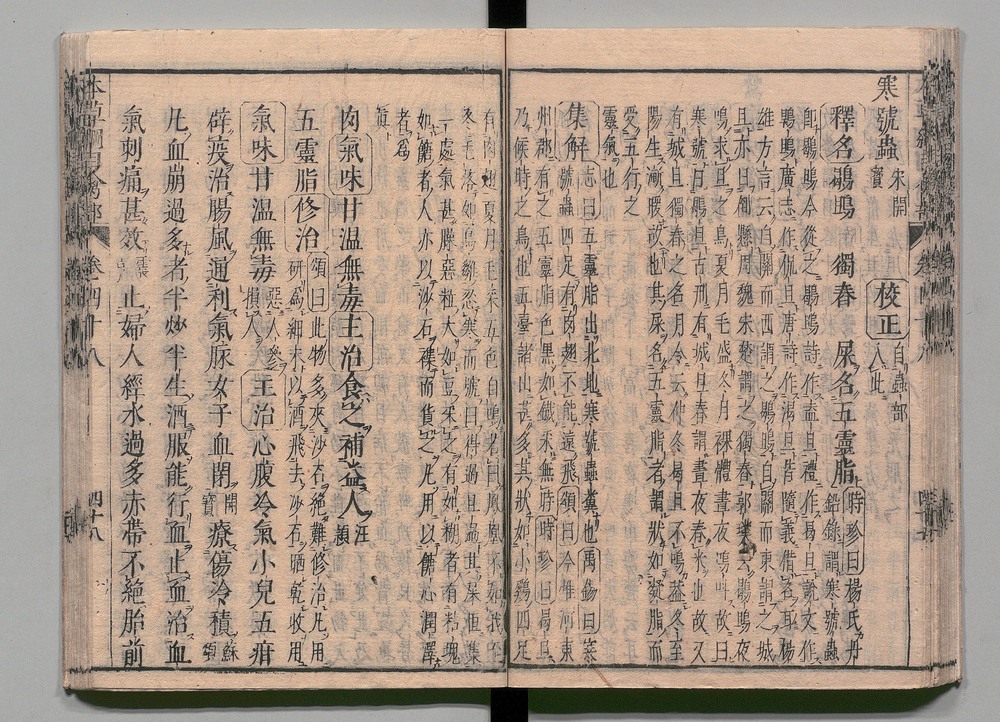 寒號蟲 宋開寶 校正 自蟲部入此
釋名 鶡鴠 獨春 屎名五靈脂 時珍曰楊氏丹鉛錄謂寒號蟲
即鶡鴠今從之鶡鴠詩作盍旦禮作曷旦說文作
鶡鴠廣志作侃旦唐詩作渴旦皆隨義借名耳楊
雄方言云自關而西謂之鶡鴠自關而東謂之城
旦亦曰倒懸周魏宋楚謂之獨春郭璞云鶡鴠夜
鳴求旦之鳥夏月毛盛冬月裸體晝夜鳴叫故曰
寒號曰鶡旦古刑有城旦春謂晝夜春米也故又
有城旦獨春之名月令云仲冬曷旦不鳴蓋冬至
陽生漸暖故也其屎名五靈脂者謂狀如凝脂而
受五行之
靈氣也
集解 志曰五靈脂出北地寒號蟲糞也禹錫曰寒
號蟲四足有肉翅不能遠飛頌曰今惟河東
州郡有之五靈脂色黑如鐵采無時時珍曰曷旦
乃候時之鳥也五臺諸山甚多其狀如小雞四足
有肉翅夏月毛采五色自鳴若曰鳳凰不如我
冬毛落如鳥雛忍寒而號曰得過且過其屎恒集
一處氣甚臊惡粒大如豆采之有如糊者有粘塊
如餹者人亦以沙石襍而貨之凡用以餹心潤澤
者爲
眞
肉氣味甘溫無毒主治食之補益人 汪穎
五靈脂修治 頌曰此物多夾沙石絕難修治凡用
研爲細末以酒飛去沙石晒乾收用
氣味甘溫無毒 惡人參損人 主治心腹冷氣小兒五疳
辟疫治腸風通利氣脈女子血閉 開寶 療傷冷積 蘇頌
凡血崩過多者半炒半生酒服能行血止血治血
氣刺痛甚效 震亨 止婦人經水過多赤帶不絕胎前
卷四十八
四十八